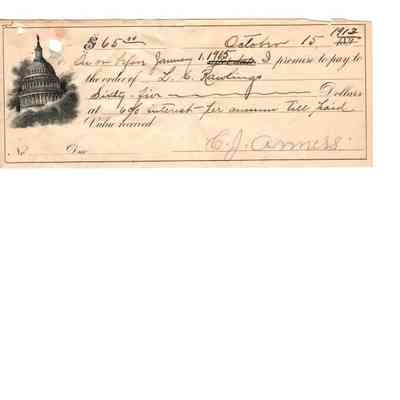 $65.00 October 15 1912
On or before January 1, 1965 I promise to pay to
the order of L. C. Rawlings
Sixty-five Dollars
at 6% interest per annum till paid
Value received
No. Due C. J.